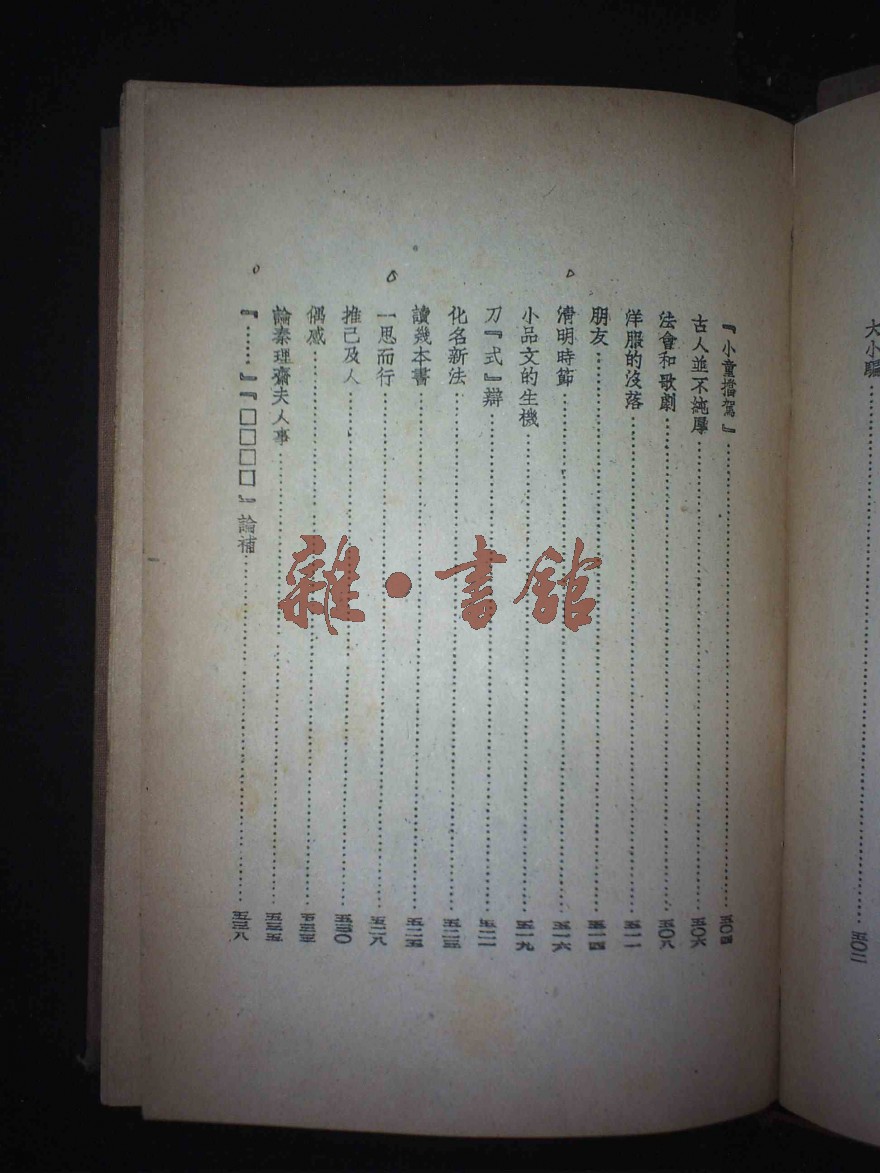 大小騙……五〇二
『小童擋駕』……五〇四
古人並不純厚……五〇六
法會和歌劇……五〇八
洋服的沒落……五一一
朋友……五一四
清明時節……五一六
小品文的生機……五一九
刀『式』辯……五二一
化名新法……五二三
讀幾本書……五二五
一思而行……五二八
推己及人……五三〇
偶感……五三三
論秦理齋夫人事……五三五
『……』『□□□□』論補……五三八
雜・書館